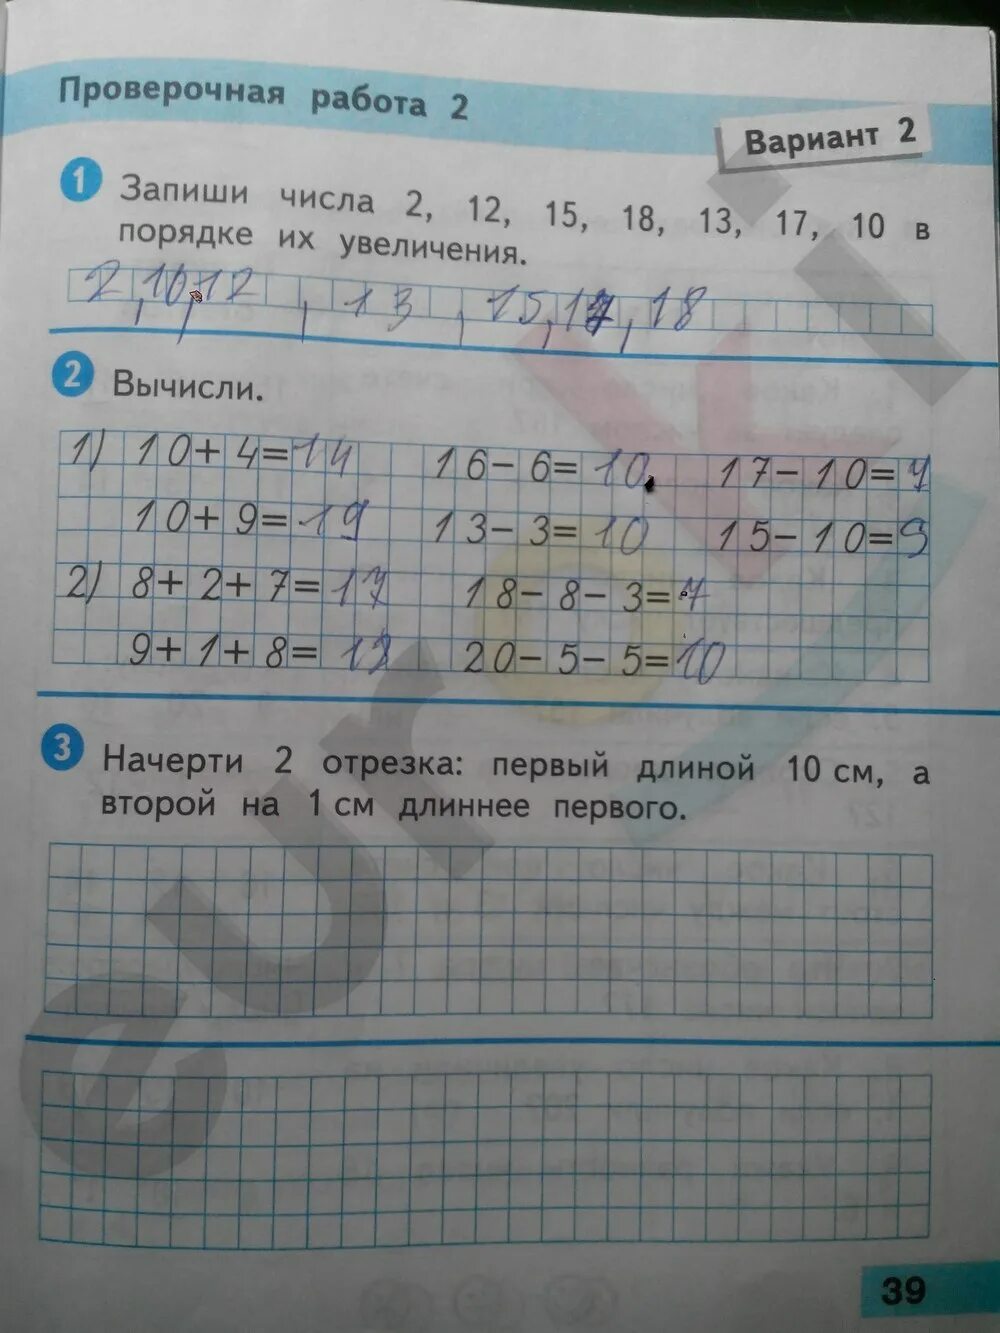 Проверочная работа 2
Вариант 2
1 Запиши числа 2, 12, 15, 18, 13, 17, 10 в
порядке их увеличения.
2, 10, 12, 13, 15, 17, 18
2 Вычисли.
1) 10+4=14 16-6=10 17-10=7
10+9=19 13-3=10 15-10=5
2) 8+2+7=17 18-8-3=7
9+1+8= 20-5-5=10
3 Начерти 2 отрезка: первый длиной 10 см, а
второй на 1 см длиннее первого.
39